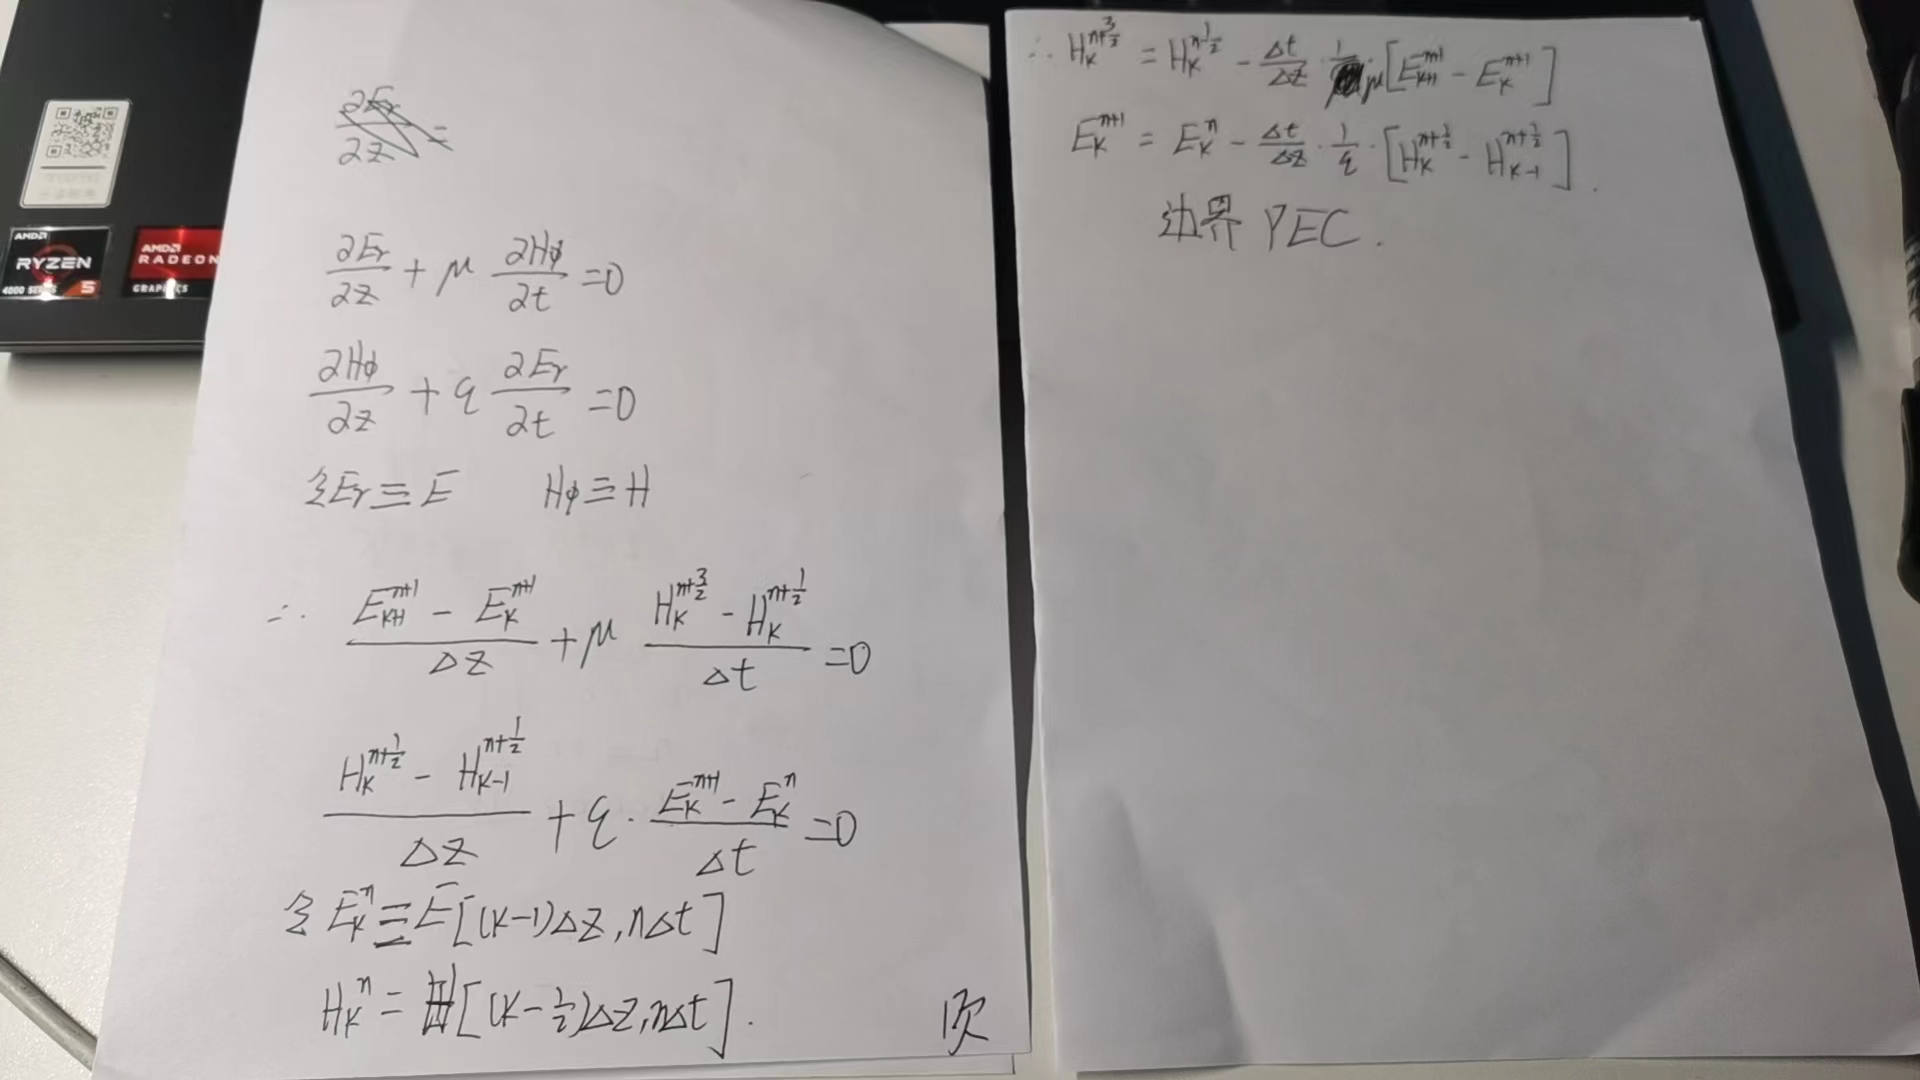 AMD
RYZEN
4000 SERIES 5
AMD
RADEON
GRAPHICS
∂Er/∂z =
∂Er/∂z + μ ∂Hϕ/∂t =0
∂Hϕ/∂z + ε ∂Er/∂t =0
令Er≡E Hϕ≡H
∴ (E_{K+1}^{n+1} - E_K^{n+1})/Δz + μ (H_K^{n+3/2} - H_K^{n+1/2})/Δt =0
(H_K^{n+1/2} - H_{K-1}^{n+1/2})/Δz + ε · (E_K^{n+1} - E_K^n)/Δt =0
令 E_K^n ≡ E[(K-1)Δz, nΔt]
H_K^n = H[(K-1/2)Δz, nΔt].
∴ H_K^{n+3/2} = H_K^{n+1/2} - Δt/Δz · 1/μ [E_{K+1}^{n+1} - E_K^{n+1}]
E_K^{n+1} = E_K^n - Δt/Δz · 1/ε · [H_K^{n+1/2} - H_{K-1}^{n+1/2}].
边界 PEC.